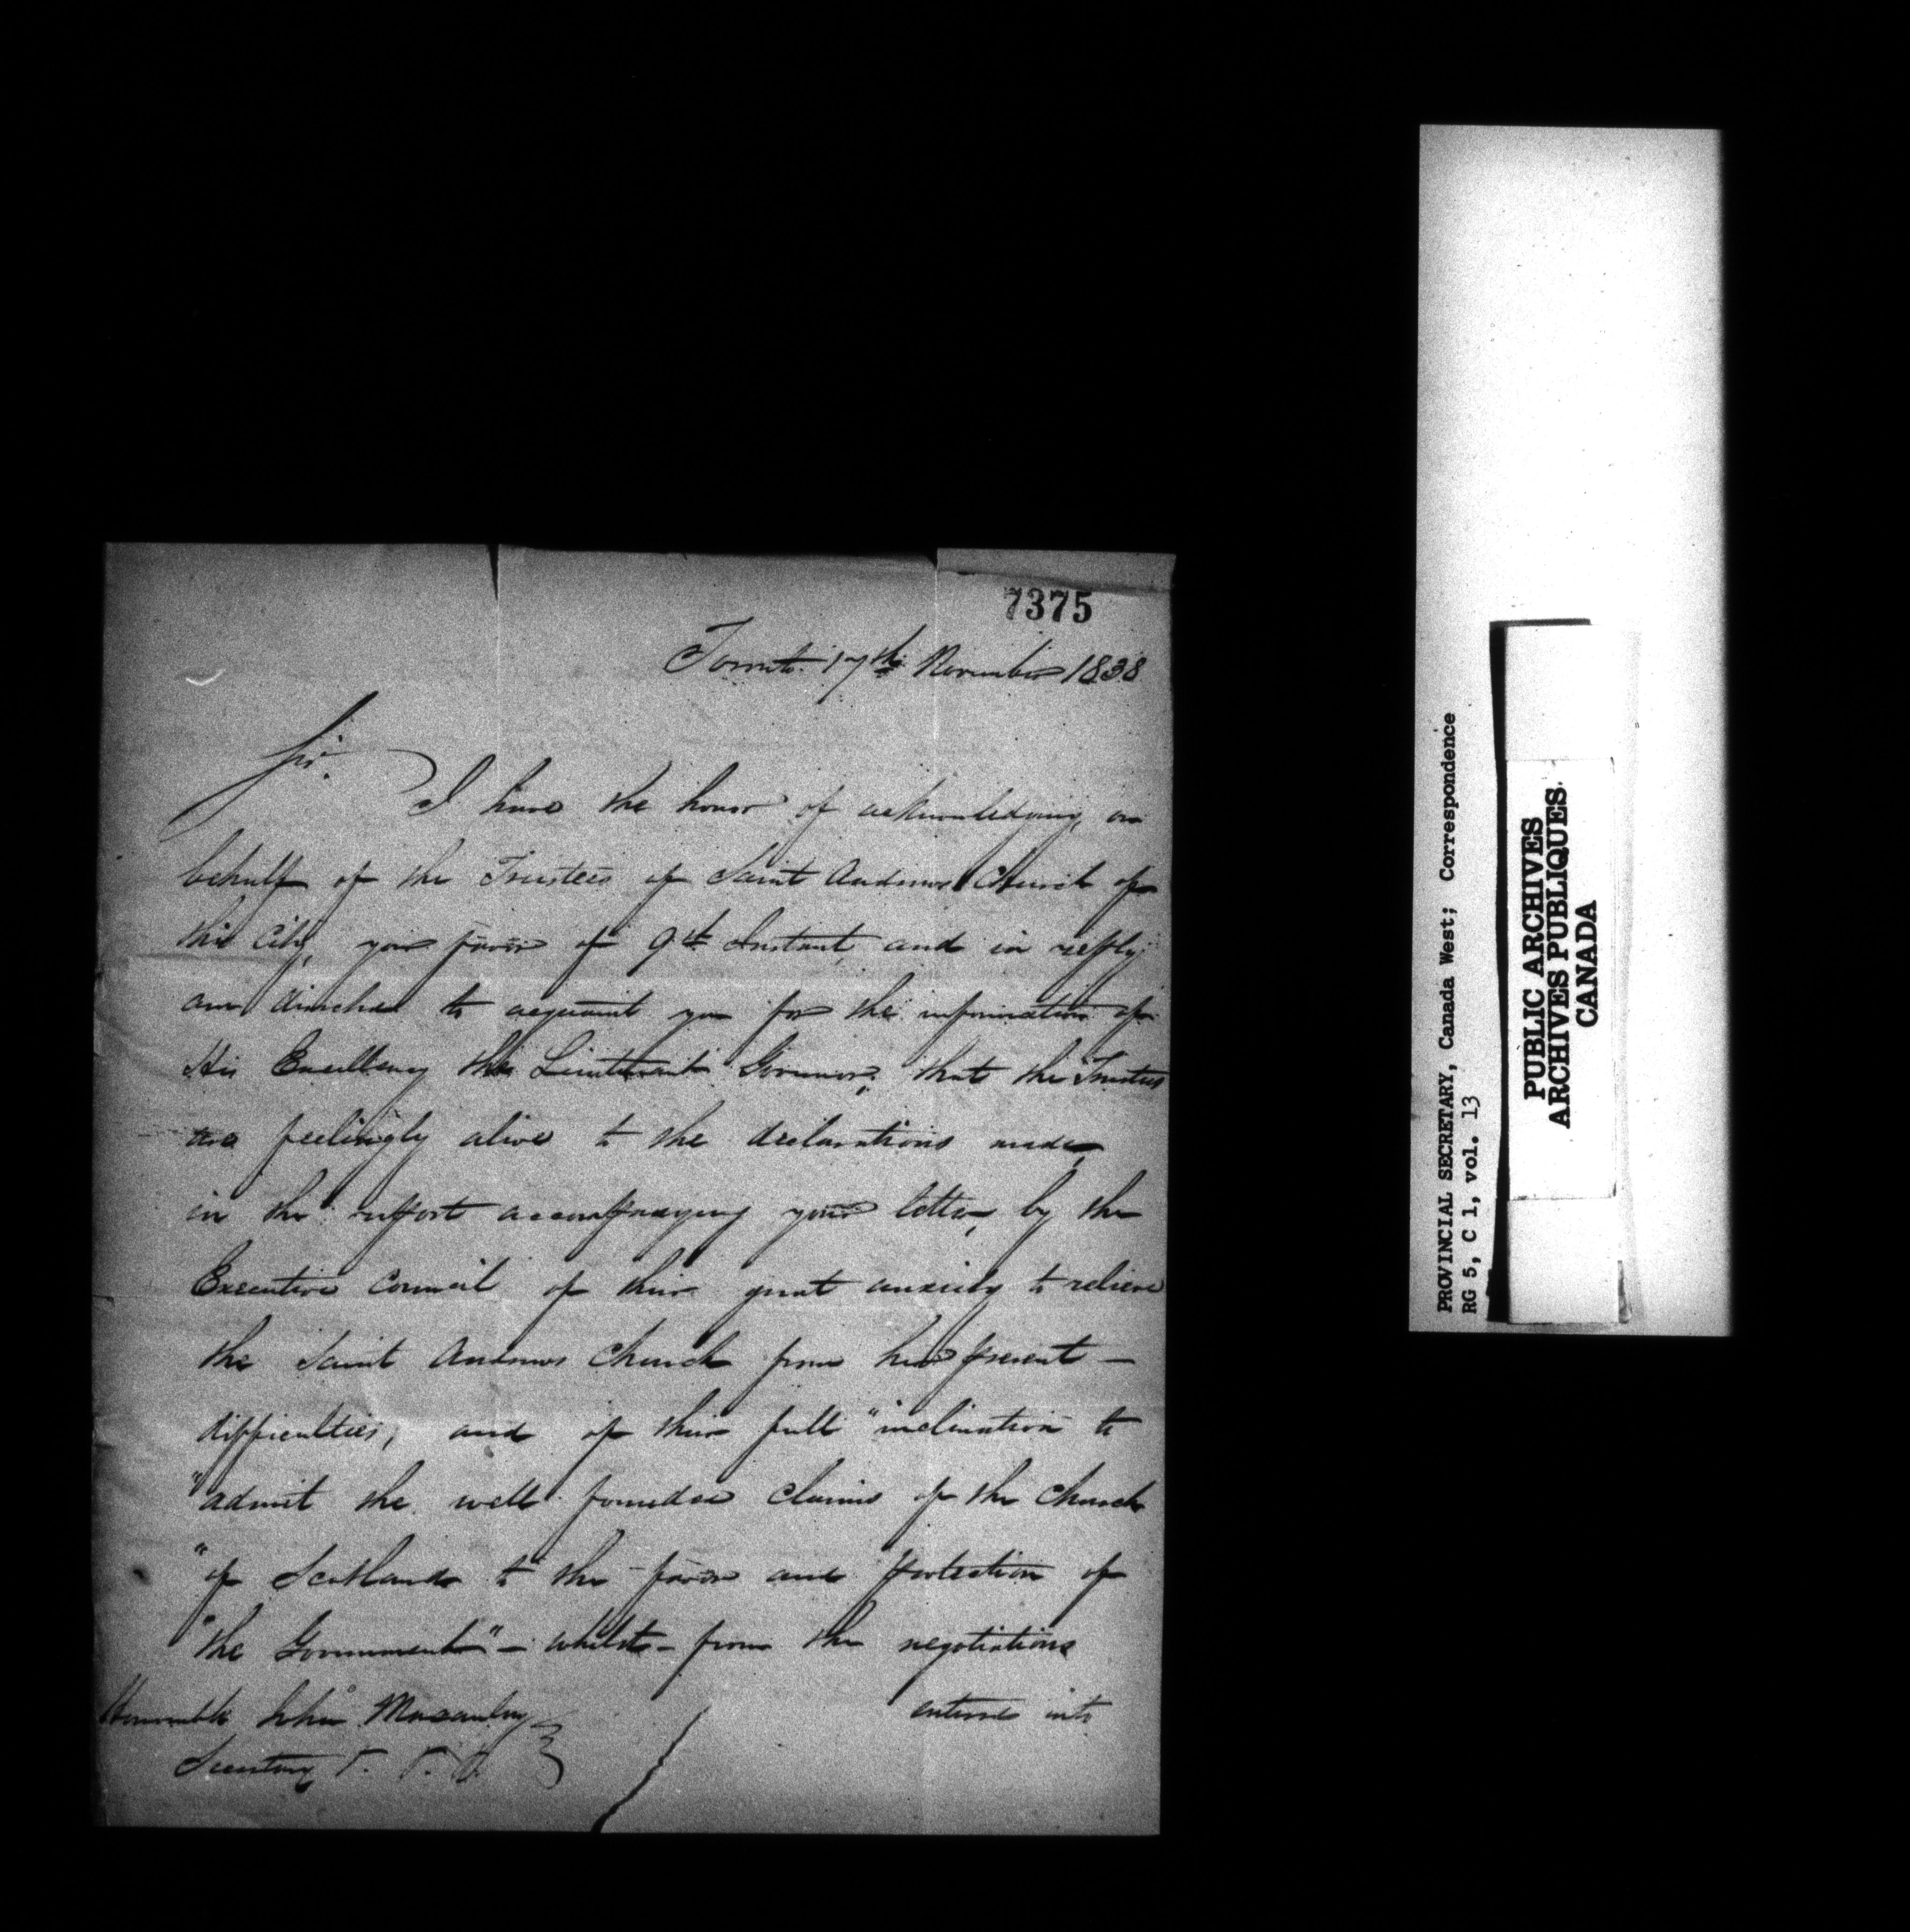 7375
Toronto 17th November 1838
Sir.
I have the honor of acknowledging, on
behalf of the Trustees of Saint Andrews Church of
this City, your favor of 9th Instant, and in reply
am directed to acquaint you for the information of
His Excellency the Lieutenant Governor, that the Trustees
are feelingly alive to the declarations made,
in the report accompanying your letter, by the
Executive Council of their great anxiety to relieve
the Saint Andrews Church from her present —
difficulties, and of their full "inclination to
"admit the well founded claims of the Church
"of Scotland to the favor and protection of
"the Government" — whilst — from the negotiations
entered into
Honorable John Macaulay
Secretary
PROVINCIAL SECRETARY, Canada West; Correspondence
RG 5, C 1, vol. 13
PUBLIC ARCHIVES
ARCHIVES PUBLIQUES
CANADA